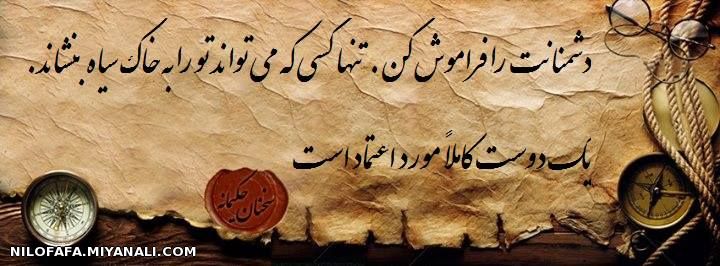 دشمنانت را فراموش کن . تنها کسی که می تواند تو را به خاک سیاه بنشاند.
یک دوست کاملاً مورد اعتماد است
سخنان حکیمانه
NILOFAFA.MIYANALI.COM